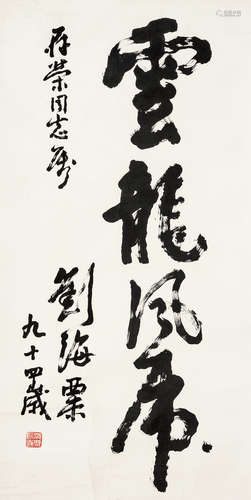 雲龍風虎
存榮同志屬
劉海粟
九十四歲